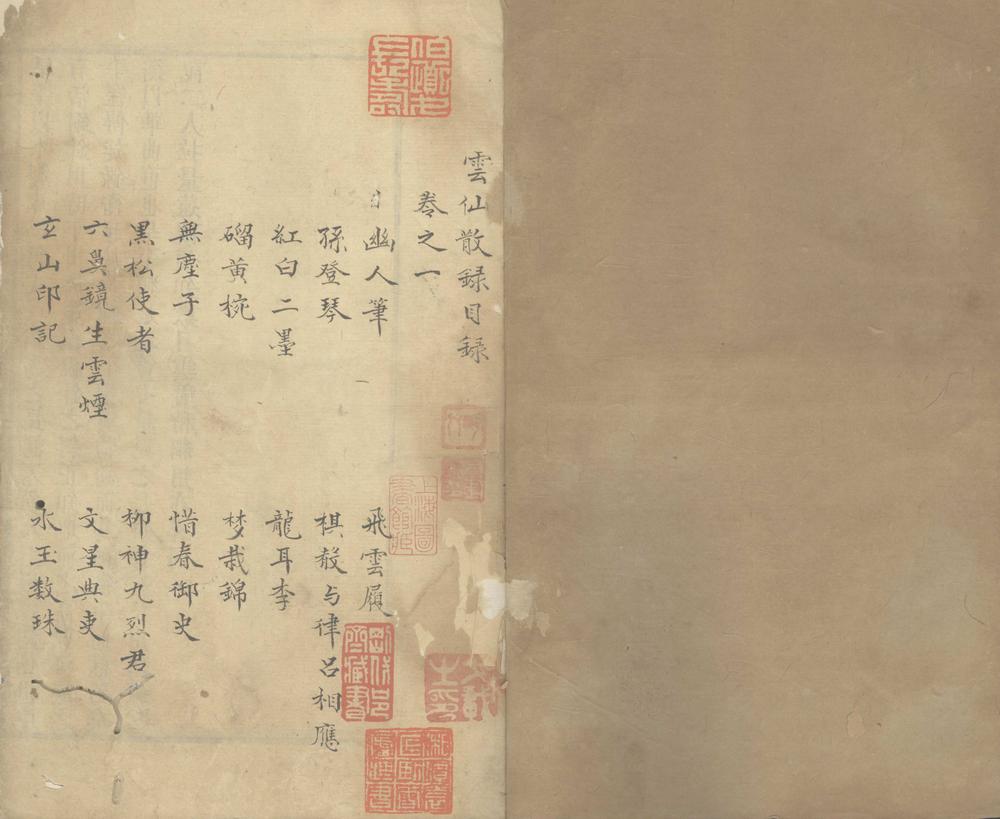 雲仙散録目録
卷之一
幽人筆
飛雲履
孫登琴
棋聲与律呂相應
紅白二墨
龍耳李
磂黃椀
梦裁錦
無塵子
惜春御史
黒松使者
柳神九烈君
六㒵鏡生雲煙
文星典吏
玄山印記
水玉数珠
上海圖
書館藏